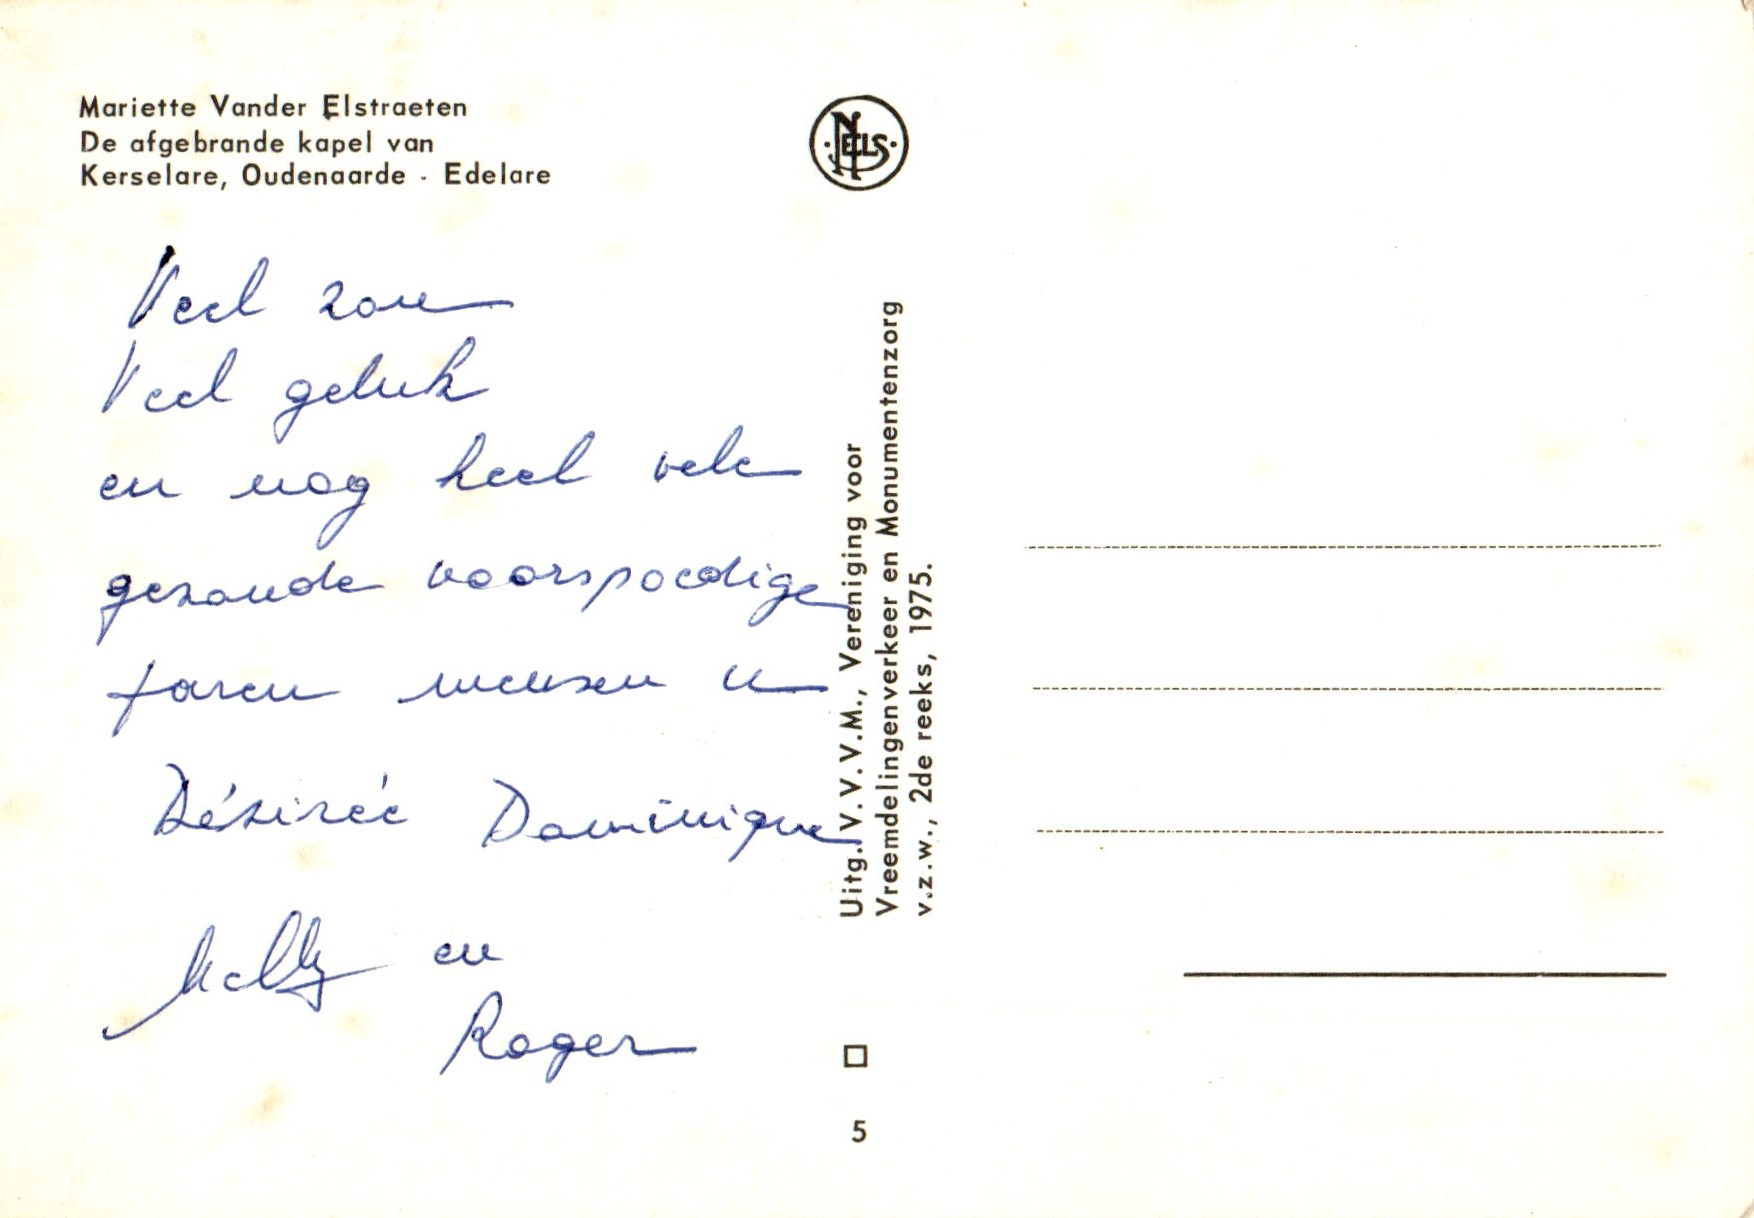 Mariette Vander Elstraeten
De afgebrande kapel van
Kerselare, Oudenaarde - Edelare
NELS
Veel zon
Veel geluk
en nog heel vele
gezonde voorspoedige
jaren wensen u
Désireé Dominique
Nelly en
Roger
Uitg. V.V.V.M., Vereniging voor
Vreemdelingenverkeer en Monumentenzorg
v.z.w., 2de reeks, 1975.
5